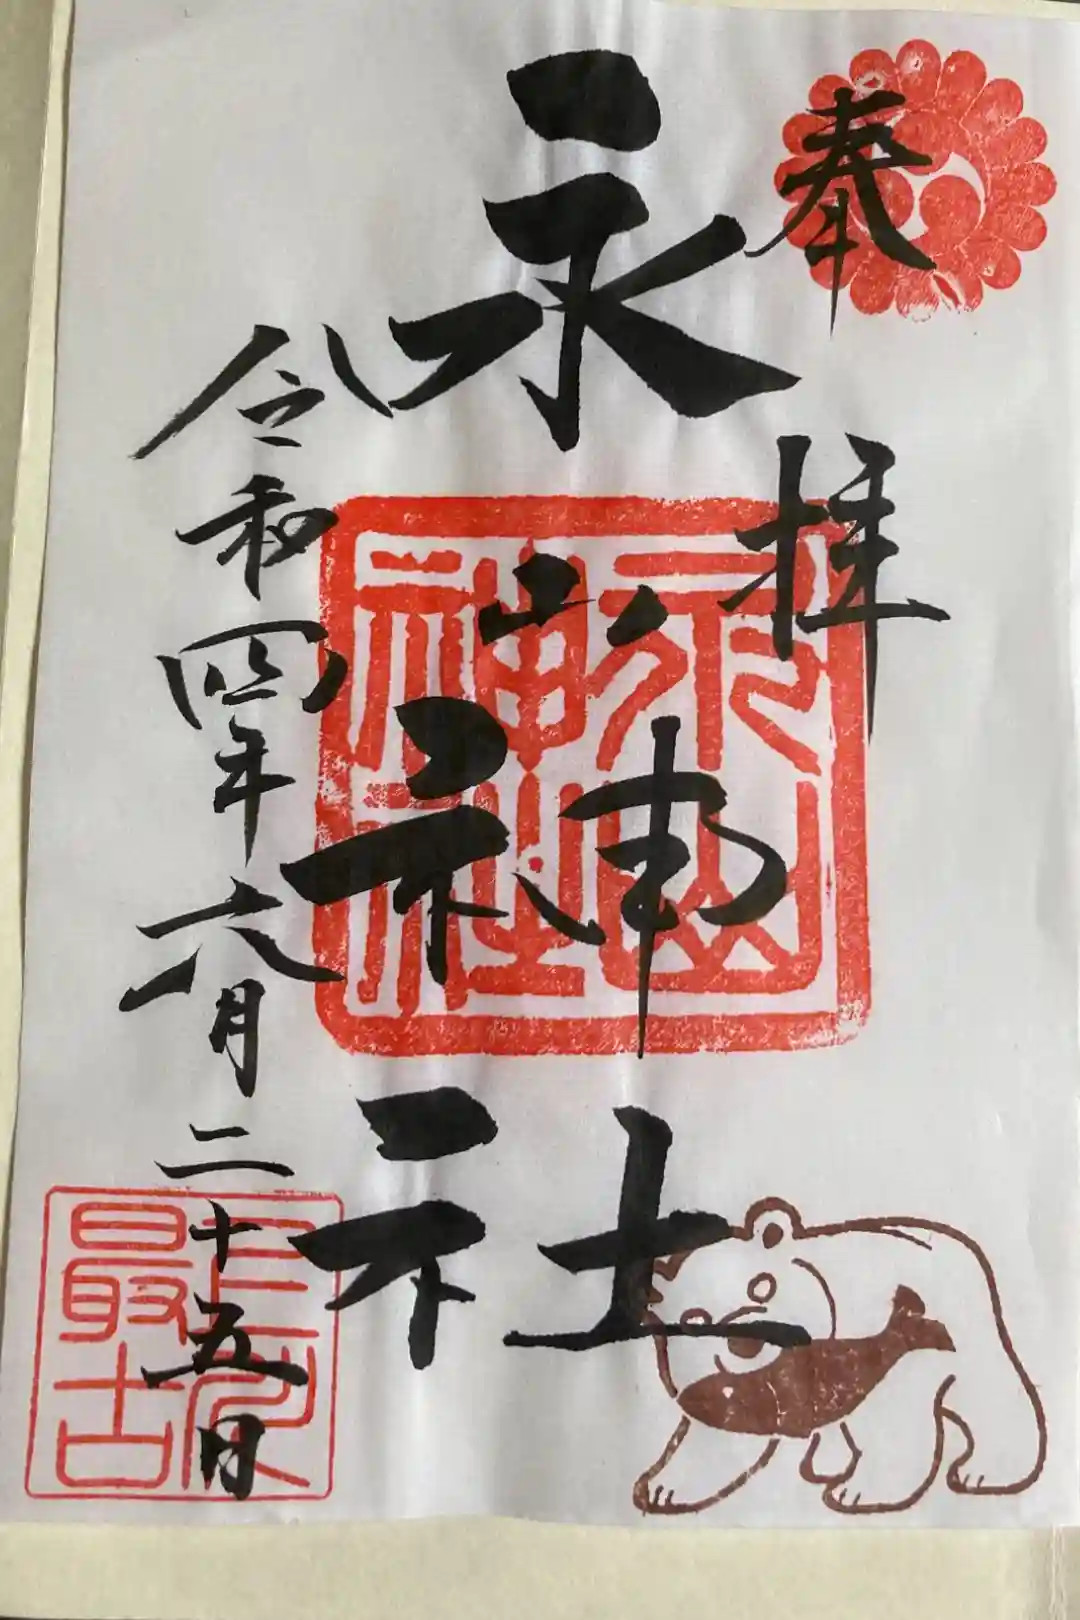 奉拝
永山神社
令和四年六月二十五日
永山神社
上川最古